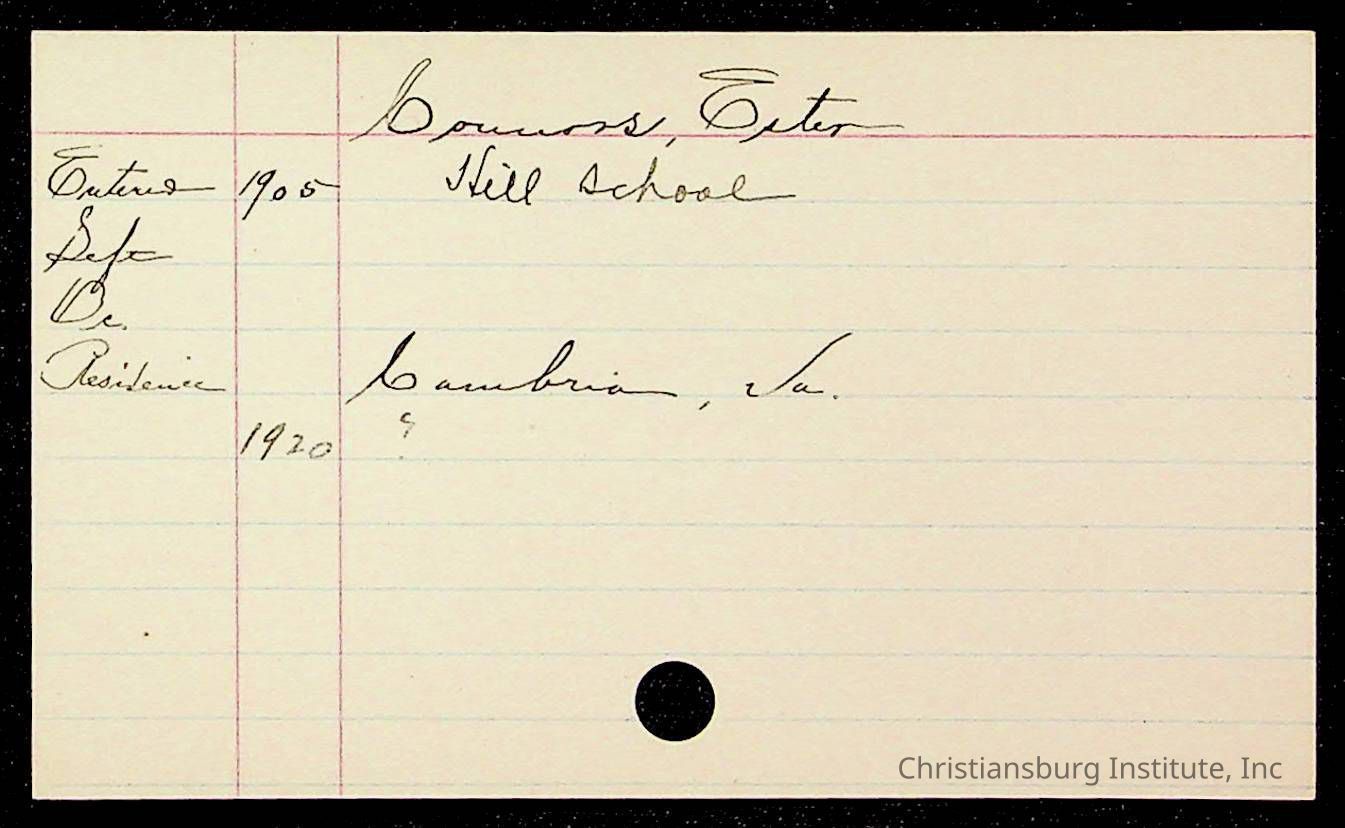 Connors, Ester
Entered 1905 Hill School
Left
Oc.
Residence Cambria, Va.
1920 ?
Christiansburg Institute, Inc